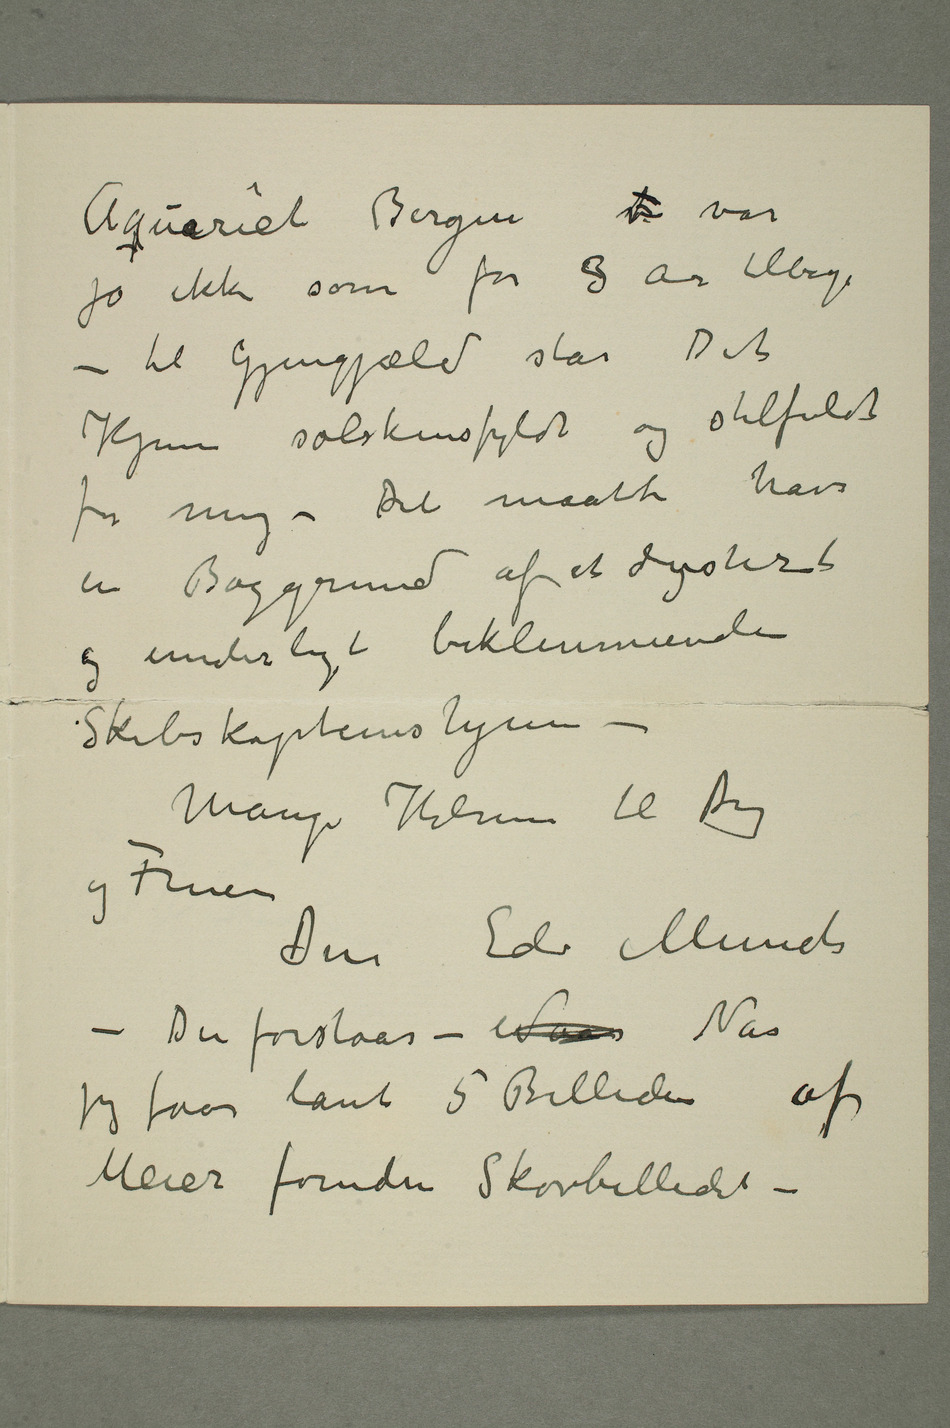 Aquariet Bergen var
jo ikke som for 3 Aar tilbage
– til Gjengjæld står Dit
Hjem solskinsfyldt og stilfuldt
for mig – Det maatte have
en Baggrund af et dystert
og underligt beklemmende
Skibskapteinshjem –
Mange Hilsener til Dig
og Fruen
Din Edv Munch
– Du forstaar – Naar
jeg faar lånt 5 Billeder af
Meier foruden Skovbilledet –